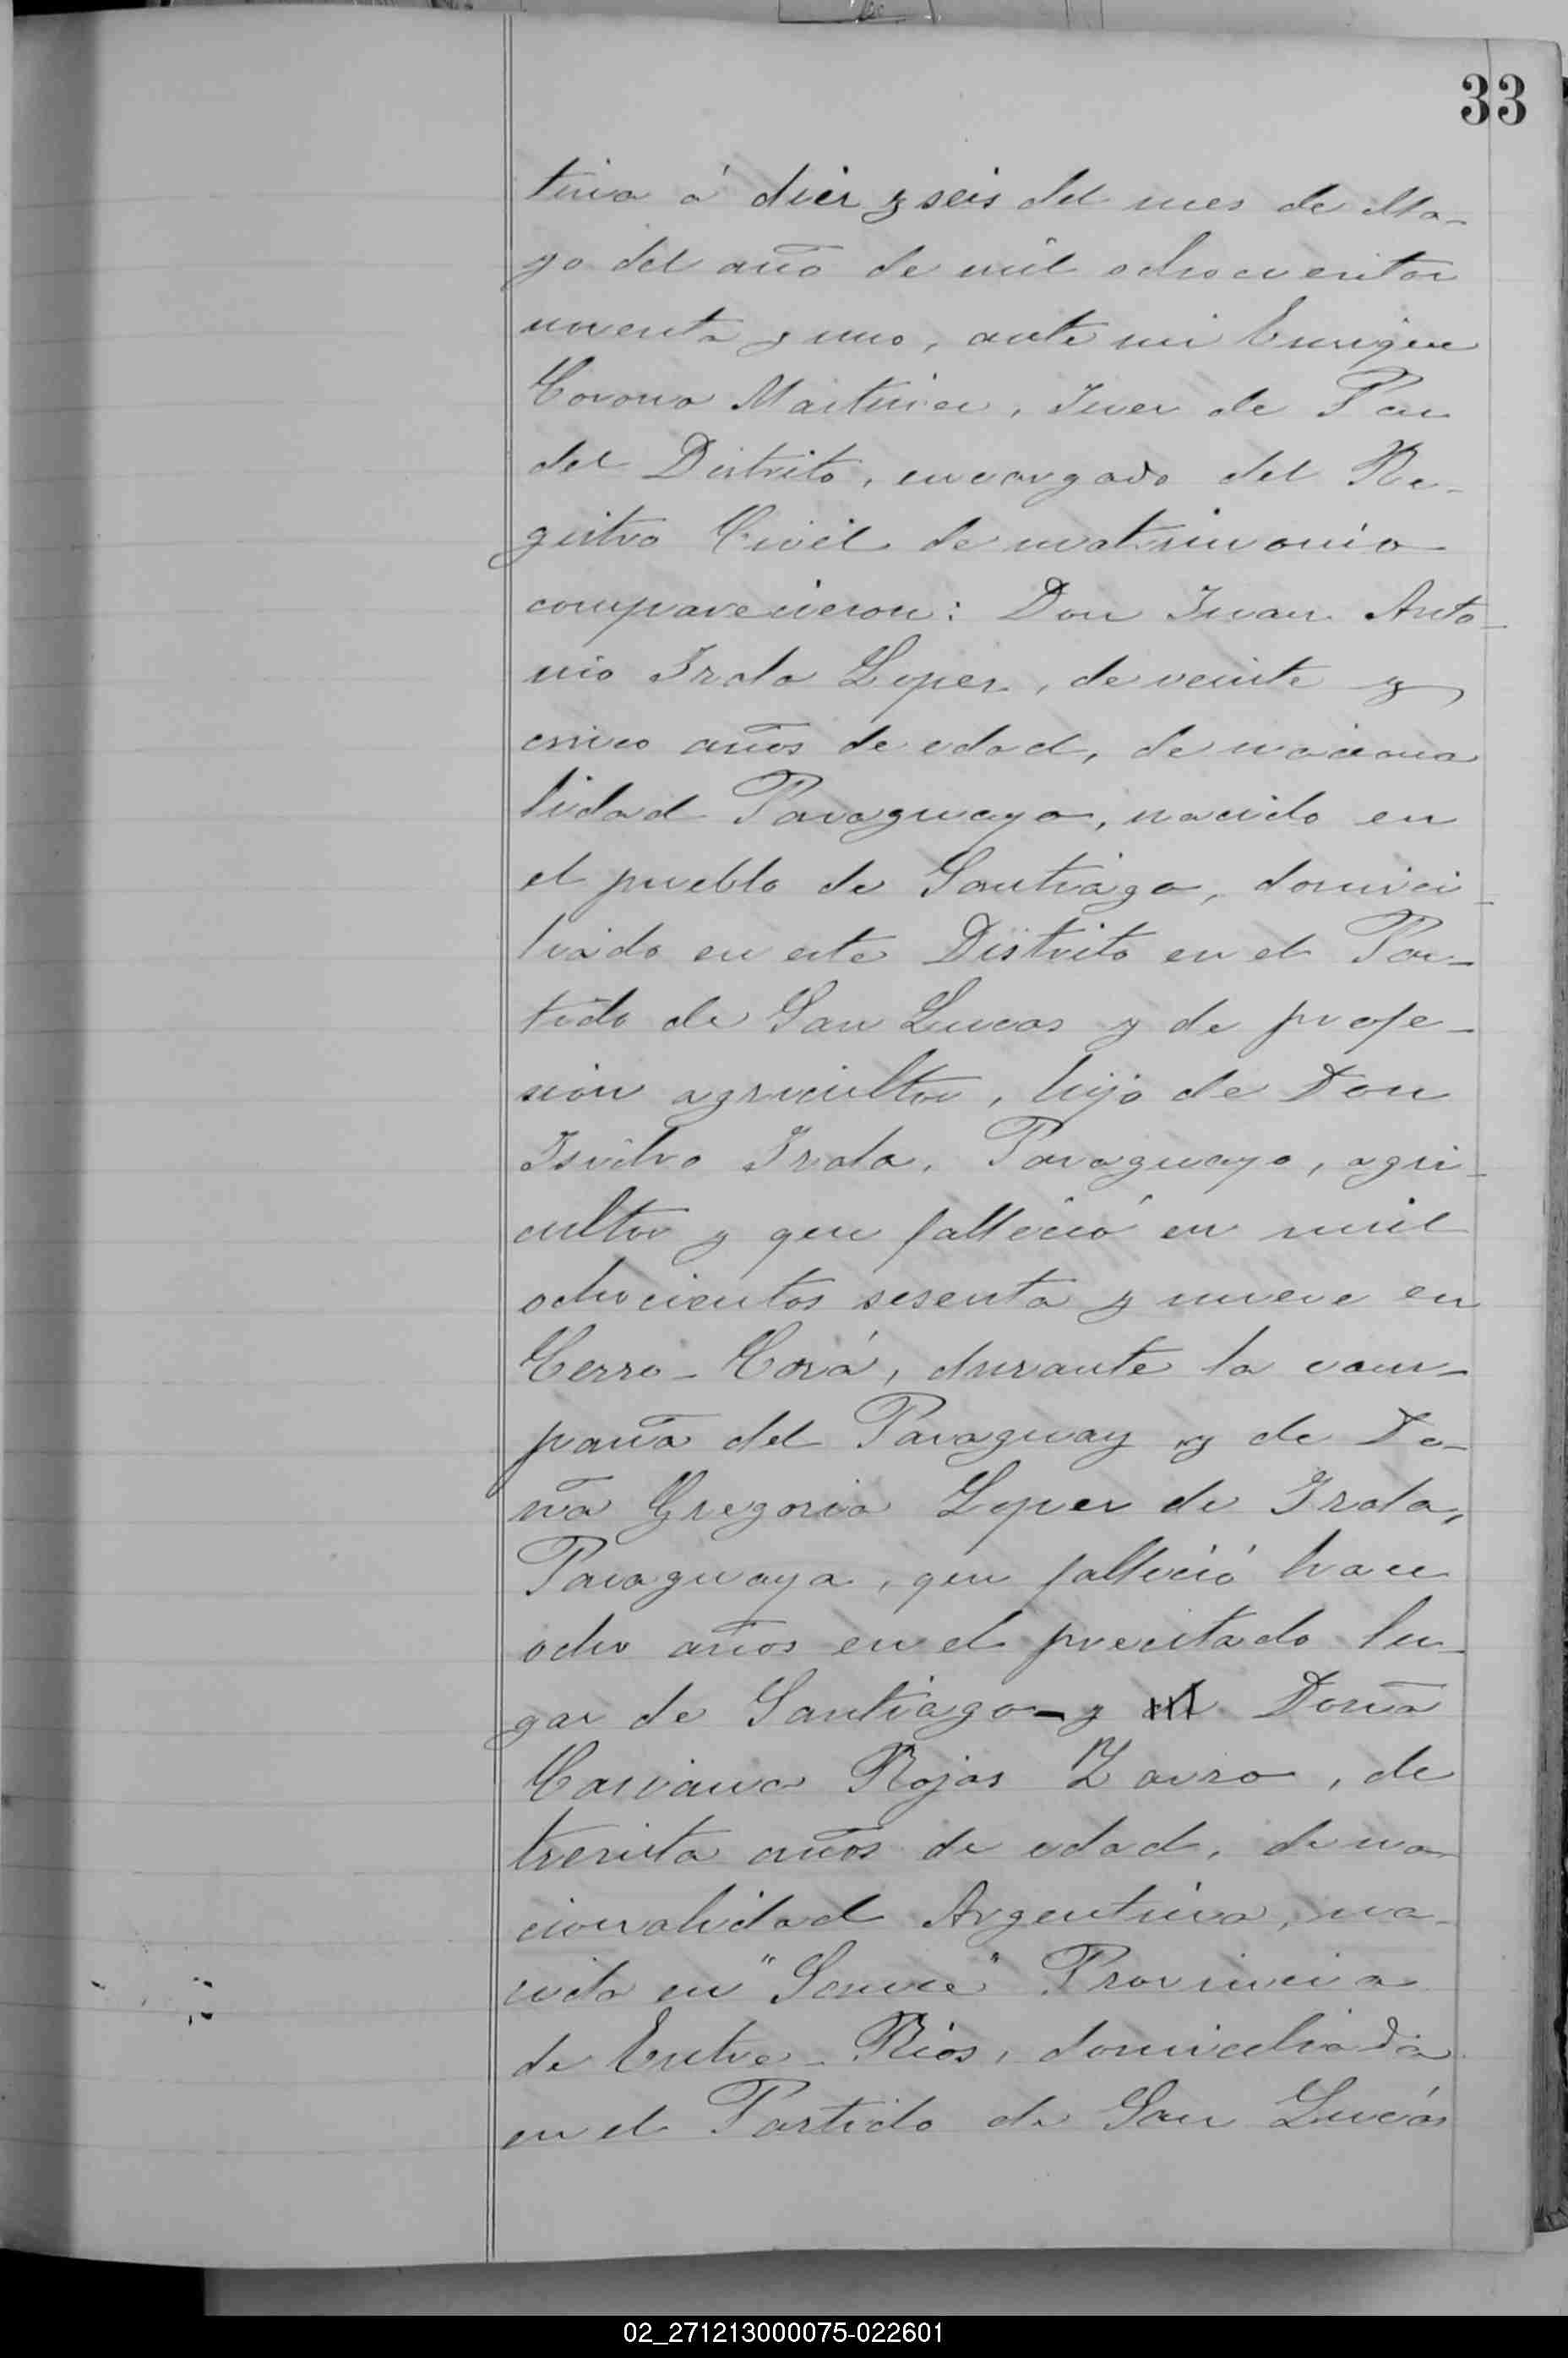 33
tina á diez y seis del mes de Ma-
yo del año de mil ochocientos
noventa y uno, ante mi Enrique
Corona Martinez, Juez de Paz
del Distrito, encargado del Re-
gistro Civil de matrimonio
comparecieron: Don Juan Anto-
nio Irala Lopez, de veinte y
cinco años de edad, de naciona
lidad Paraguaya, nacido en
el pueblo de Santiago, domici-
liado en este Distrito en el Par-
tido de San Lucas y de profe-
sion agricultor, hijo de Don
Isidro Irala, Paraguayo, agri-
cultor y que falleció en mil
ochocientos sesenta y nueve en
Cerro-Corá, durante la cam-
paña del Paraguay y de Do-
ña Gregoria Lopez de Irala,
Paraguaya, que falleció hace
ocho años en el precitado lu-
gar de Santiago - y Doña
Casiana Rojas Zarza, de
treinta años de edad, de na
cionalidad Argentina, na-
cida en "Sauce" Provincia
de Entre-Rios, domiciliada
en el Partido de San Lucás
02_271213000075-022601